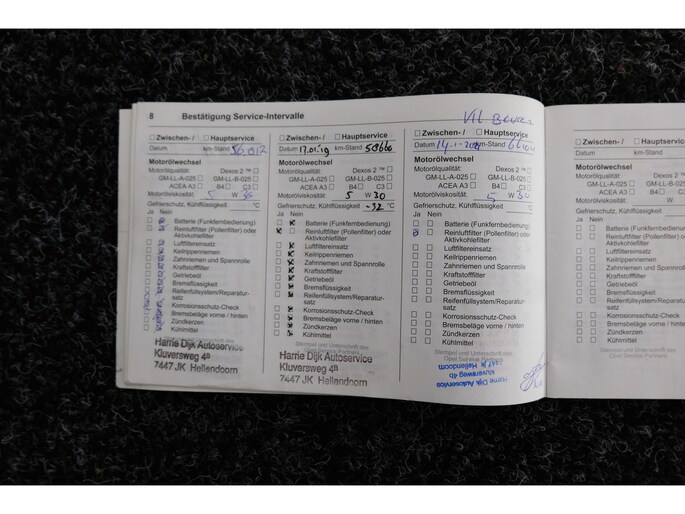 8 Bestätigung Service-Intervalle
Zwischen- / Hauptservice
Datum km-Stand 56.012
Motorölwechsel
Motorölqualität: Dexos 2 ™
GM-LL-A-025 GM-LL-B-025
ACEA A3 B4 C3
Motorölviskosität: 5 W
Gefrierschutz, Kühlflüssigkeit °C
Ja Nein
Batterie (Funkfernbedienung)
Reinluftfilter (Pollenfilter) oder
Aktivkohlefilter
Luftfiltereinsatz
Keilrippenriemen
Zahnriemen und Spannrolle
Kraftstofffilter
Getriebeöl
Bremsflüssigkeit
Reifenfüllsystem/Reparatur-
satz
Korrosionsschutz-Check
Bremsbeläge vorne / hinten
Zündkerzen
Kühlmittel
Harrie Dijk Autoservice
Kluversweg 4ᵇ
7447 JK Hellendoorn
Zwischen- / Hauptservice
Datum 17.01.19 km-Stand 58660
Motorölwechsel
Motorölqualität: Dexos 2 ™
GM-LL-A-025 GM-LL-B-025
ACEA A3 B4 C3
Motorölviskosität: 5 W 30
Gefrierschutz, Kühlflüssigkeit -32 °C
Ja Nein
Batterie (Funkfernbedienung)
Reinluftfilter (Pollenfilter) oder
Aktivkohlefilter
Luftfiltereinsatz
Keilrippenriemen
Zahnriemen und Spannrolle
Kraftstofffilter
Getriebeöl
Bremsflüssigkeit
Reifenfüllsystem/Reparatur-
satz
Korrosionsschutz-Check
Bremsbeläge vorne / hinten
Zündkerzen
Kühlmittel
Stempel und Unterschrift des
Opel Service Partners
Harrie Dijk Autoservice
Kluversweg 4ᵇ
7447 JK Hellendoorn
Zwischen- / Hauptservice
Datum km-Stand
Motorölwechsel
Motorölqualität: Dexos 2 ™
GM-LL-A-025 GM-LL-B-025
ACEA A3 B4 C3
Motorölviskosität: 5 W 30
Gefrierschutz, Kühlflüssigkeit °C
Ja Nein
Batterie (Funkfernbedienung)
Reinluftfilter (Pollenfilter) oder
Aktivkohlefilter
Luftfiltereinsatz
Keilrippenriemen
Zahnriemen und Spannrolle
Kraftstofffilter
Getriebeöl
Bremsflüssigkeit
Reifenfüllsystem/Reparatur-
satz
Korrosionsschutz-Check
Bremsbeläge vorne / hinten
Zündkerzen
Kühlmittel
Stempel und Unterschrift des
Opel Service Partners
Harrie Dijk Autoservice
Kluversweg 4b
7447 jk Hellendoorn
Zwischen- /
Datum
Motorölwechsel
Motorölqualität:
GM-LL-A-025
ACEA A3
Motorölviskosität:
Gefrierschutz, Kühlflüssigkeit
Ja Nein
Batterie (Funkfernbedienung)
Reinluftfilter (Pollenfilter)
Aktivkohlefilter
Luftfiltereinsatz
Keilrippenriemen
Zahnriemen und Spannrolle
Kraftstofffilter
Getriebeöl
Bremsflüssigkeit
Reifenfüllsystem/Reparatur-
satz
Korrosionsschutz-Check
Bremsbeläge vorne / hinten
Zündkerzen
Kühlmittel